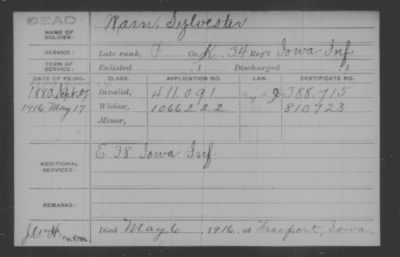 DEAD
NAME OF SOLDIER: Warn, Sylvester
SERVICE: Late rank, P Co. K, 34 Reg't Iowa Inf
TERM OF SERVICE: Enlisted , 1 Discharged , 1
DATE OF FILING. CLASS. APPLICATION NO. LAW. CERTIFICATE NO.
1880 Sept. 27 Invalid, 411,091 388,715
1916 May 17 Widow, 1066222 810723
Minor,
ADDITIONAL SERVICES: E 38 Iowa Inf.
REMARKS:
Died May 6, 1916, at Freeport, Iowa